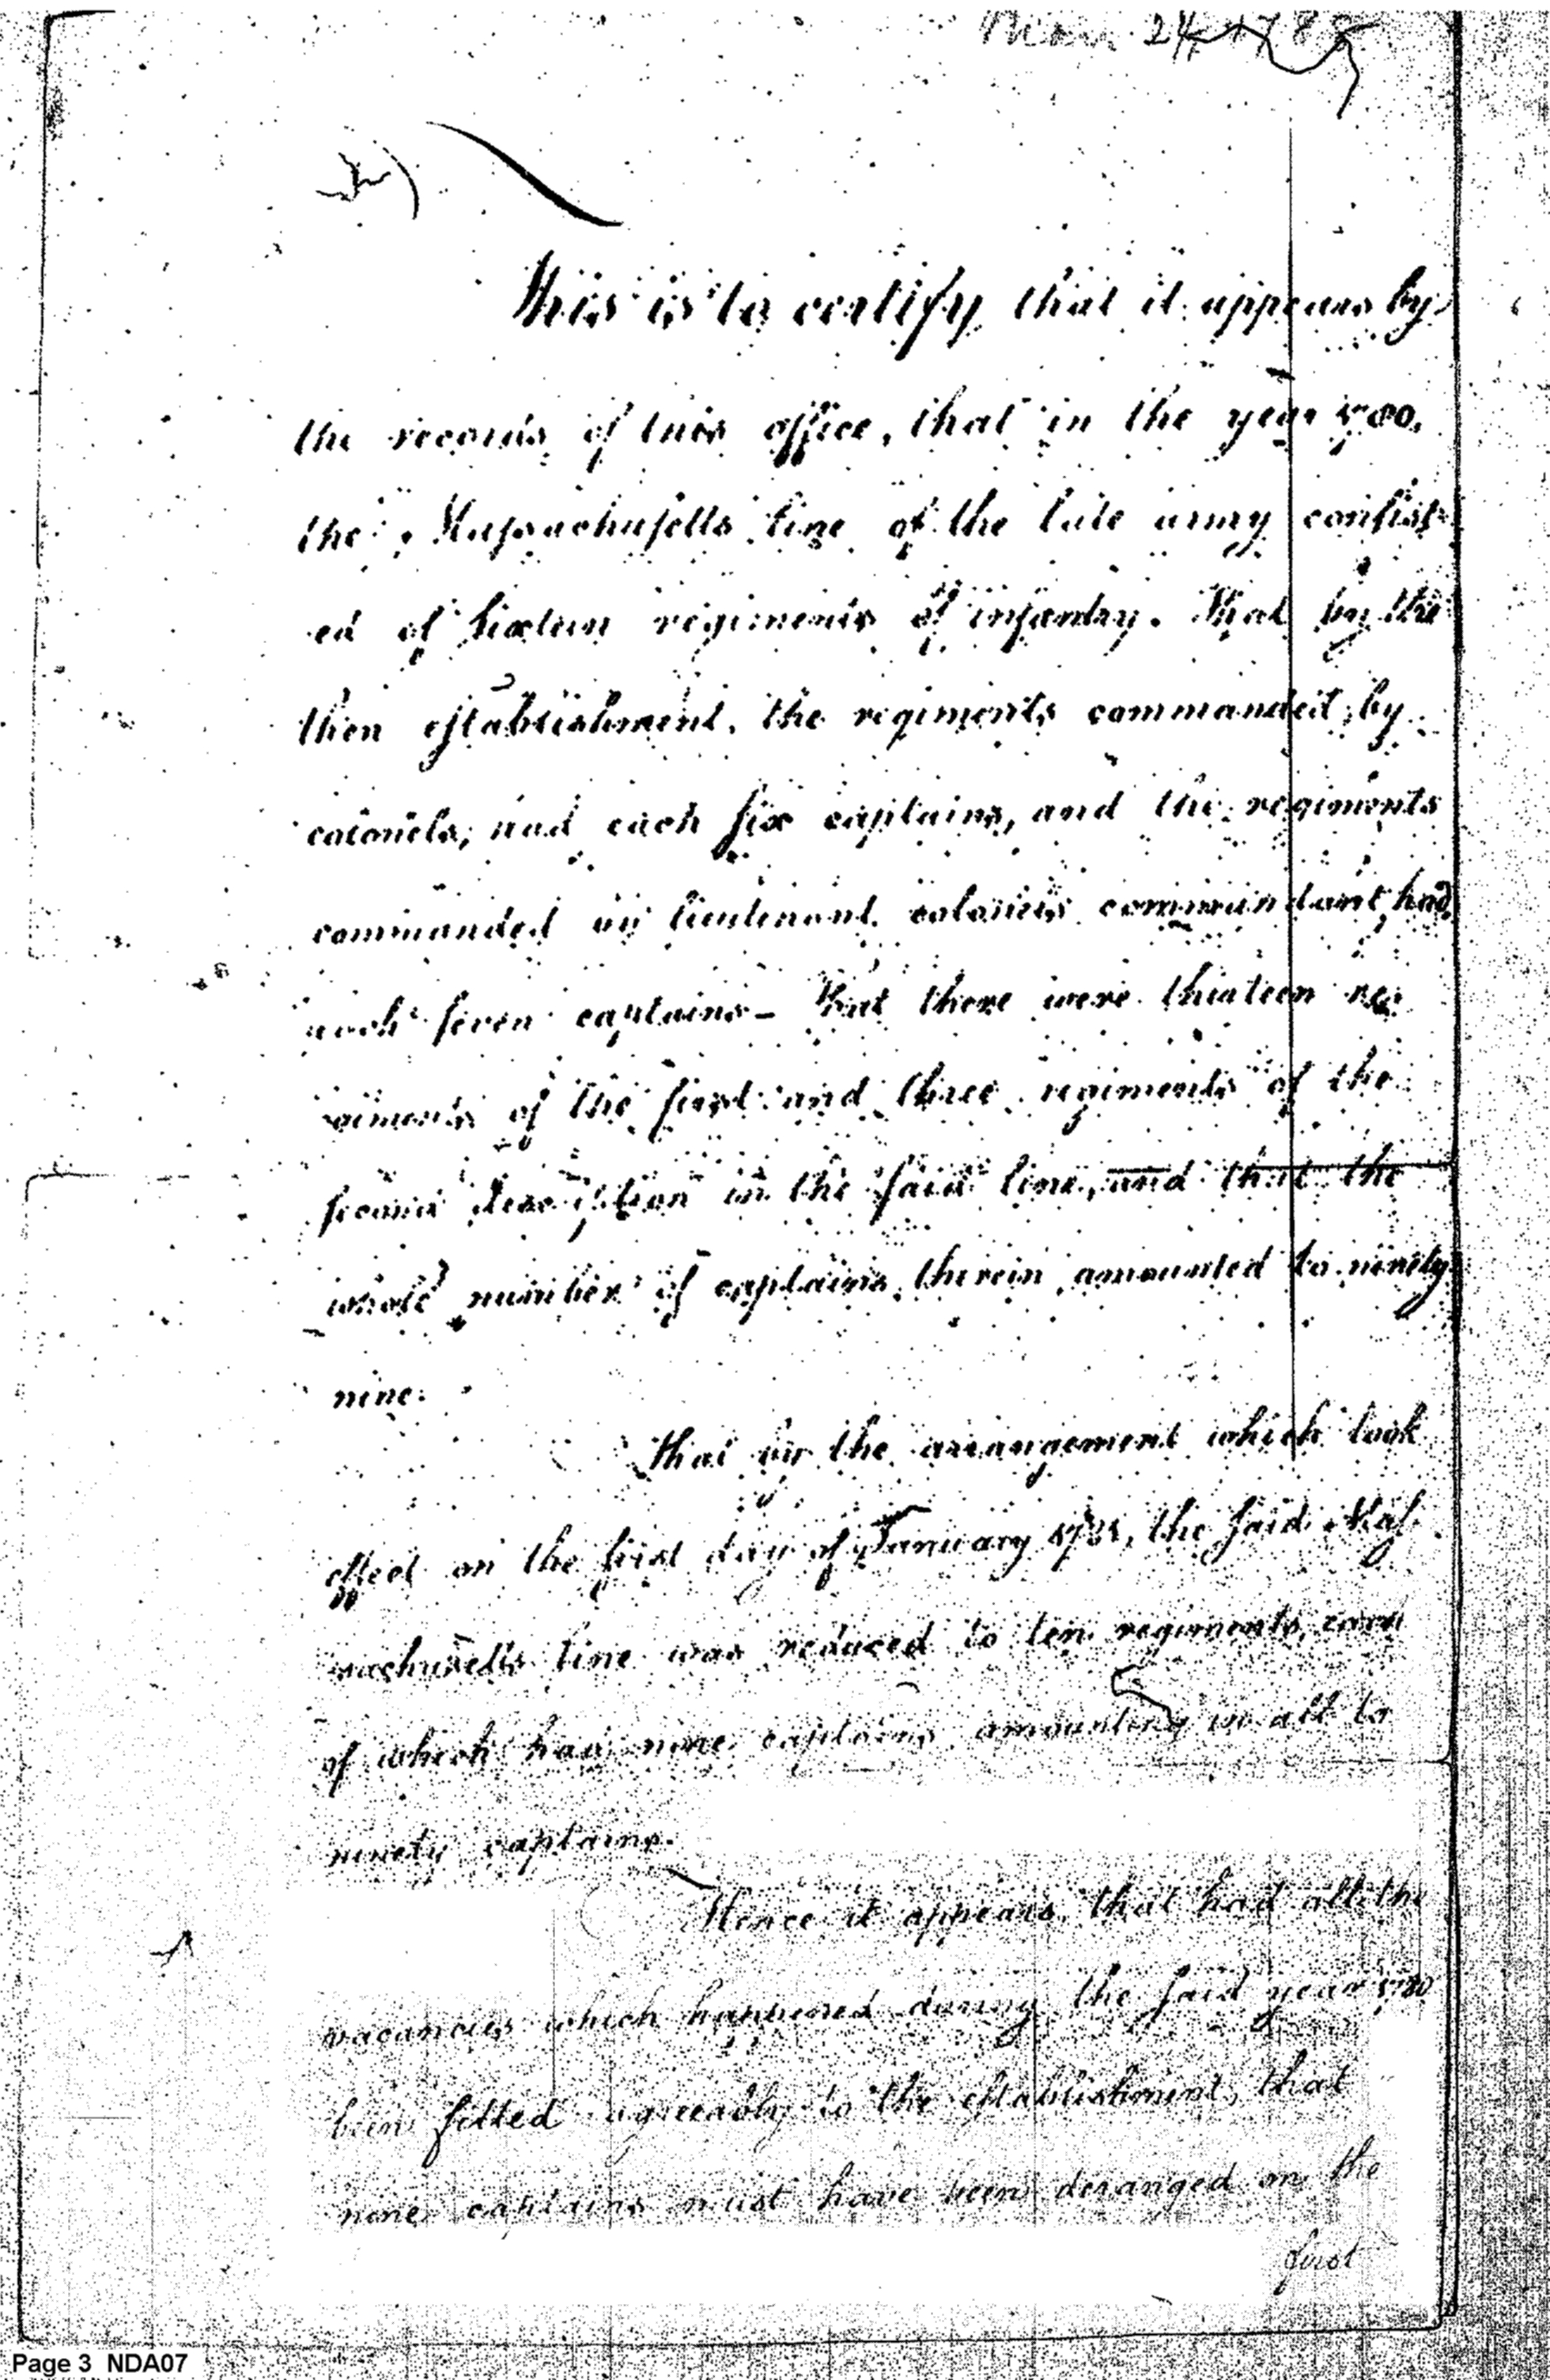 24, 1788
This is to certify that it appears by
the records of this office, that in the year 1780,
the Massachusetts line of the late army consist-
ed of sixteen regiments of infantry. That by the
then establishment, the regiments commanded by
colonels, had each six captains, and the regiments
commanded by lieutenant colonels commandant, had
each seven captains — That there were thirteen re-
giments of the first and three regiments of the
second description in the said line, and that the
whole number of captains therein amounted to ninety
nine.
That by the arrangement which took
effect on the first day of January 1781, the said Mas-
sachusetts line was reduced to ten regiments, each
of which had nine captains amounting in all to
ninety captains.
Hence it appears, that had all the
vacancies which happened during the said year 1780
been filled agreeably to the establishment, that
nine captains must have been deranged on the
first
Page 3 NDA07